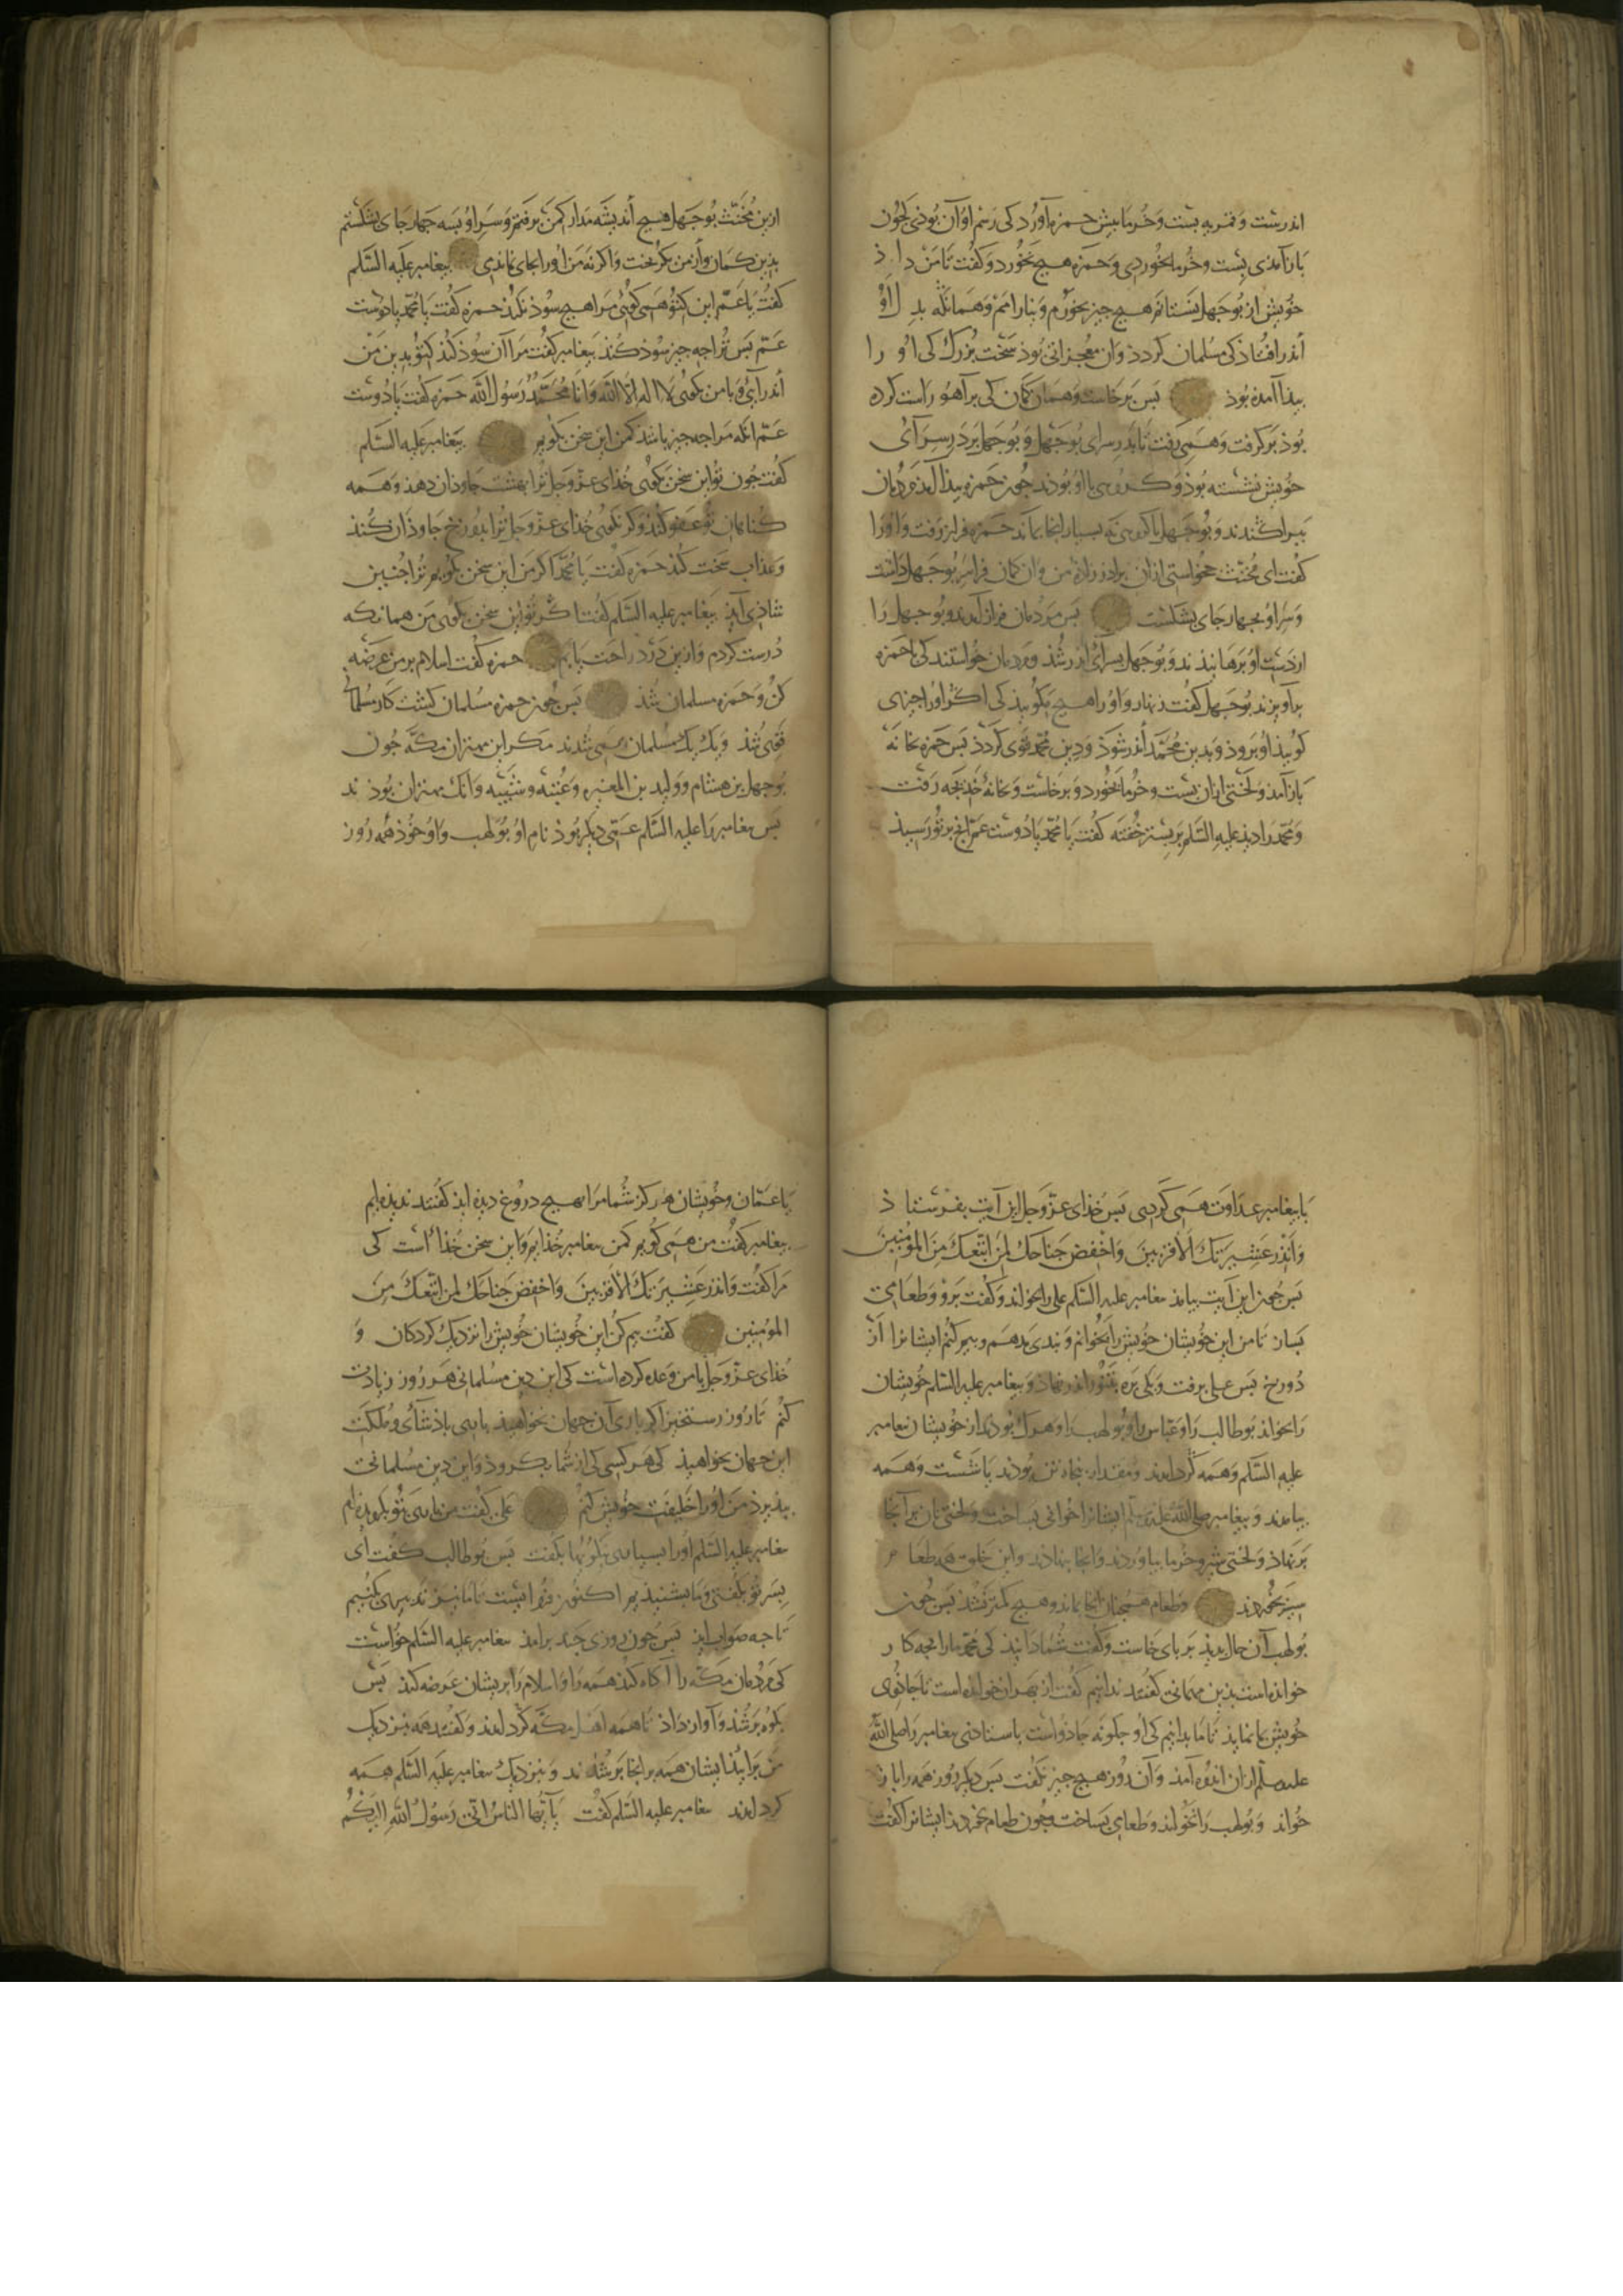 اندر بشت و قمریه بست و خرما بیش حمزه آورد کی رسم او آن بوذی کجون
باز آمدی بست و خرما بخوردی و حمزه هیج نخورد و کفت تا من داذ
خویش از بوجهل نستانم هیج جیز نخورم و نیارامم و همانکه بدل او
اندر افتاذ کی مسلمان کردذ و آن معجزاتی بوذ سخت بزرک کی او را
بیدا آمده بوذ بس برخاست و همان کمان کی بر آهو راست کرده
بوذ برکرفت و همی رفت تا بدر سرای بوجهل و بوجهل بر در سرای
خویش نشسته بوذ و کروهی با او بوذند جون حمزه بیذا آمد مردمان
ببراکندند و بوجهل با کروهی نه بسیار انجا بماند حمزه فراز رفت و او را
کفت ای مخنث جخواستی از آن براذر زاده من و آن کمان فراسر بوجهل داشت
و سر او بجهار جای بشکست بس مردمان فراز آمدند و بوجهل را
از دست او برهانیذند و بوجهل بسرای اندر شذ و مردمان خواستند کی با حمزه
برآویزند بوجهل کفت زنهار و او را هیج مکوییذ کی اکر او را جیزی
کوییذ او بروذ و بدین محمد اندر شوذ و دین محمد قوی کردذ بس حمزه بخانه
باز آمد و لختی از آن بست و خرما بخورد و برخاست و بخانه خدیجه رفت
و محمد را دیذ علیه السلم بر بستر خفته کفت یا محمد یا دوست عم آنج بر تو رسیذ
ازین مخنث بوجهل هیج اندیشه مدار کمن برفتم و سر او بسه جهار جای بشکستم
بذین کمان و از من بکریخت و اکر نه من او را بجای نماندی بیغامبر علیه السلم
کفت یا عم این کتو همی کوئی مرا هیج سوذ نکند حمزه کفت یا محمد یا دوست
عم بس ترا جه جیز سوذ کند بیغامبر کفت مرا آن سوذ کند کتو بدین من
اندر آیی و با من بکوئی لا اله الا الله و انا محمد رسول الله حمزه کفت یا دوست
عم انکه مرا جه جیز باشد کمن این سخن بکویم بیغامبر علیه السلم
کفت جون تو این سخن بکوئی خذای عز و جل ترا بهشت جاوذان دهذ و همه
کناهان تو عفو کند و کر نکوئی خذای عز و جل ترا بدوزخ جاوذان کند
و عذاب سخت کند حمزه کفت یا محمد اکر من این سخن بکویم ترا جنین
شاذی آیذ بیغامبر علیه السلم کفتا کر تو این سخن بکوئی من همانکه
درست کردم و ازین درد راحت یابم حمزه کفت اسلام بر من عرضه
کن و حمزه مسلمان شذ بس جون حمزه مسلمان کشت کار مسلمانی
قوی شذ و یک یک مسلمان همی شدند مکر این مهتران مکه جون
بوجهل بن هشام و ولید بن المغیره و عتبه و شیبه و آنک مهتران بوذند
بس بیغامبر را علیه السلم عمی دیکر بوذ نام او بولهب و او خوذ همه روز
با بیغامبر عداوت همی کردی بس خذای عز و جل این آیت بفرستاذ
وانذر عشیرتک الاقربین واخفض جناحک لمن اتبعک من المؤمنین
بس جون این آیت بیامذ بیغامبر علیه السلم علی را بخواند و کفت برو و طعامی
بساز تا من این خویشان خویش را بخوانم و بندی بدهم و بیم کنم ایشانرا از
دوزخ بس علی برفت و یکی بره بتنور اندر نهاذ و بیغامبر علیه السلم خویشان
را بخواند بوطالب را و عباس را و بولهب را و هرک بوذند از خویشان بیغامبر
علیه السلم و همه کرد امدند و مقدار بنجاه تن بوذند یا شست و همه
بیامدند و بیغامبر صلی الله علیه و سلم ایشانرا خوانی بساخت و لختی نان بر آنجا
بر نهاذ و لختی شیر و خرما بیاوردند و انجا بنهاذند و این خلق همه طعام
سیر بخوردند و طعام همجنان انجا بماند و هیج کمتر نشذ بس جون
بولهب آن حال بدیذ بر بای خاست و کفت شما دانیذ کی محمد ما را بجه کار
خوانده است بذین مهمانی کفتند ندانیم کفت از بهر آن خوانده است تا جاذوی
خویش بما نمایذ تا ما بدانیم کی او جکونه جاذواست باستاذنی بیغامبر را صلی الله
علیه و سلم از آن اندوه آمذ و آن روز هیج جیز نکفت بس دیکر روز همه را باز
خواند و بولهب را نخواند و طعامی بساخت و جون طعام بخوردند ایشانرا کفت
یا عمان و خویشان هرکز شما مرا بهیج دروغ دیده ایذ کفتند ندیده ایم
بیغامبر کفت من همی کویم کمن بیغامبر خذایم و این سخن خذا است کی
مرا کفت وانذر عشیرتک الاقربین واخفض جناحک لمن اتبعک من
المؤمنین کفت بیم کن این خویشان خویش را نزدیک کردکان و
خذای عز و جل با من وعده کرده است کی این دین مسلمانی هر روز زیادت
کنم تا روز رستخیز اکر یاری آن جهان بخواهیذ یا بی باذشائی و ملکت
این جهان بخواهیذ کی هر کسی کی از شما بکروذ و این دین مسلمانی
بیذیرذ من او را خلیفت خویش کنم علی کفت من یا نبی بتو بکرویذه ام
بیغامبر علیه السلم او را بسیار نیکویها بکفت بس بوطالب کفت ای
بسر تو بکفتی و ما بشنیذیم اکنون فرا ایست تا ما نیز تدبیری بکنیم
تا جه صواب ایذ بس جون روزی جند برامذ بیغامبر علیه السلم خواست
کی مردمان مکه را آکاه کند همه را و اسلام را بریشان عرضه کند بس
بکوه بر شذ و آواز داذ تا همه اهل مکه کرد امدند و کفتند همه بنزدیک
من برآییذ ایشان همه بر انجا بر شدند و بنزدیک بیغامبر علیه السلم همه
کرد امدند بیغامبر علیه السلم کفت یا ایها الناس انی رسول الله الیکم